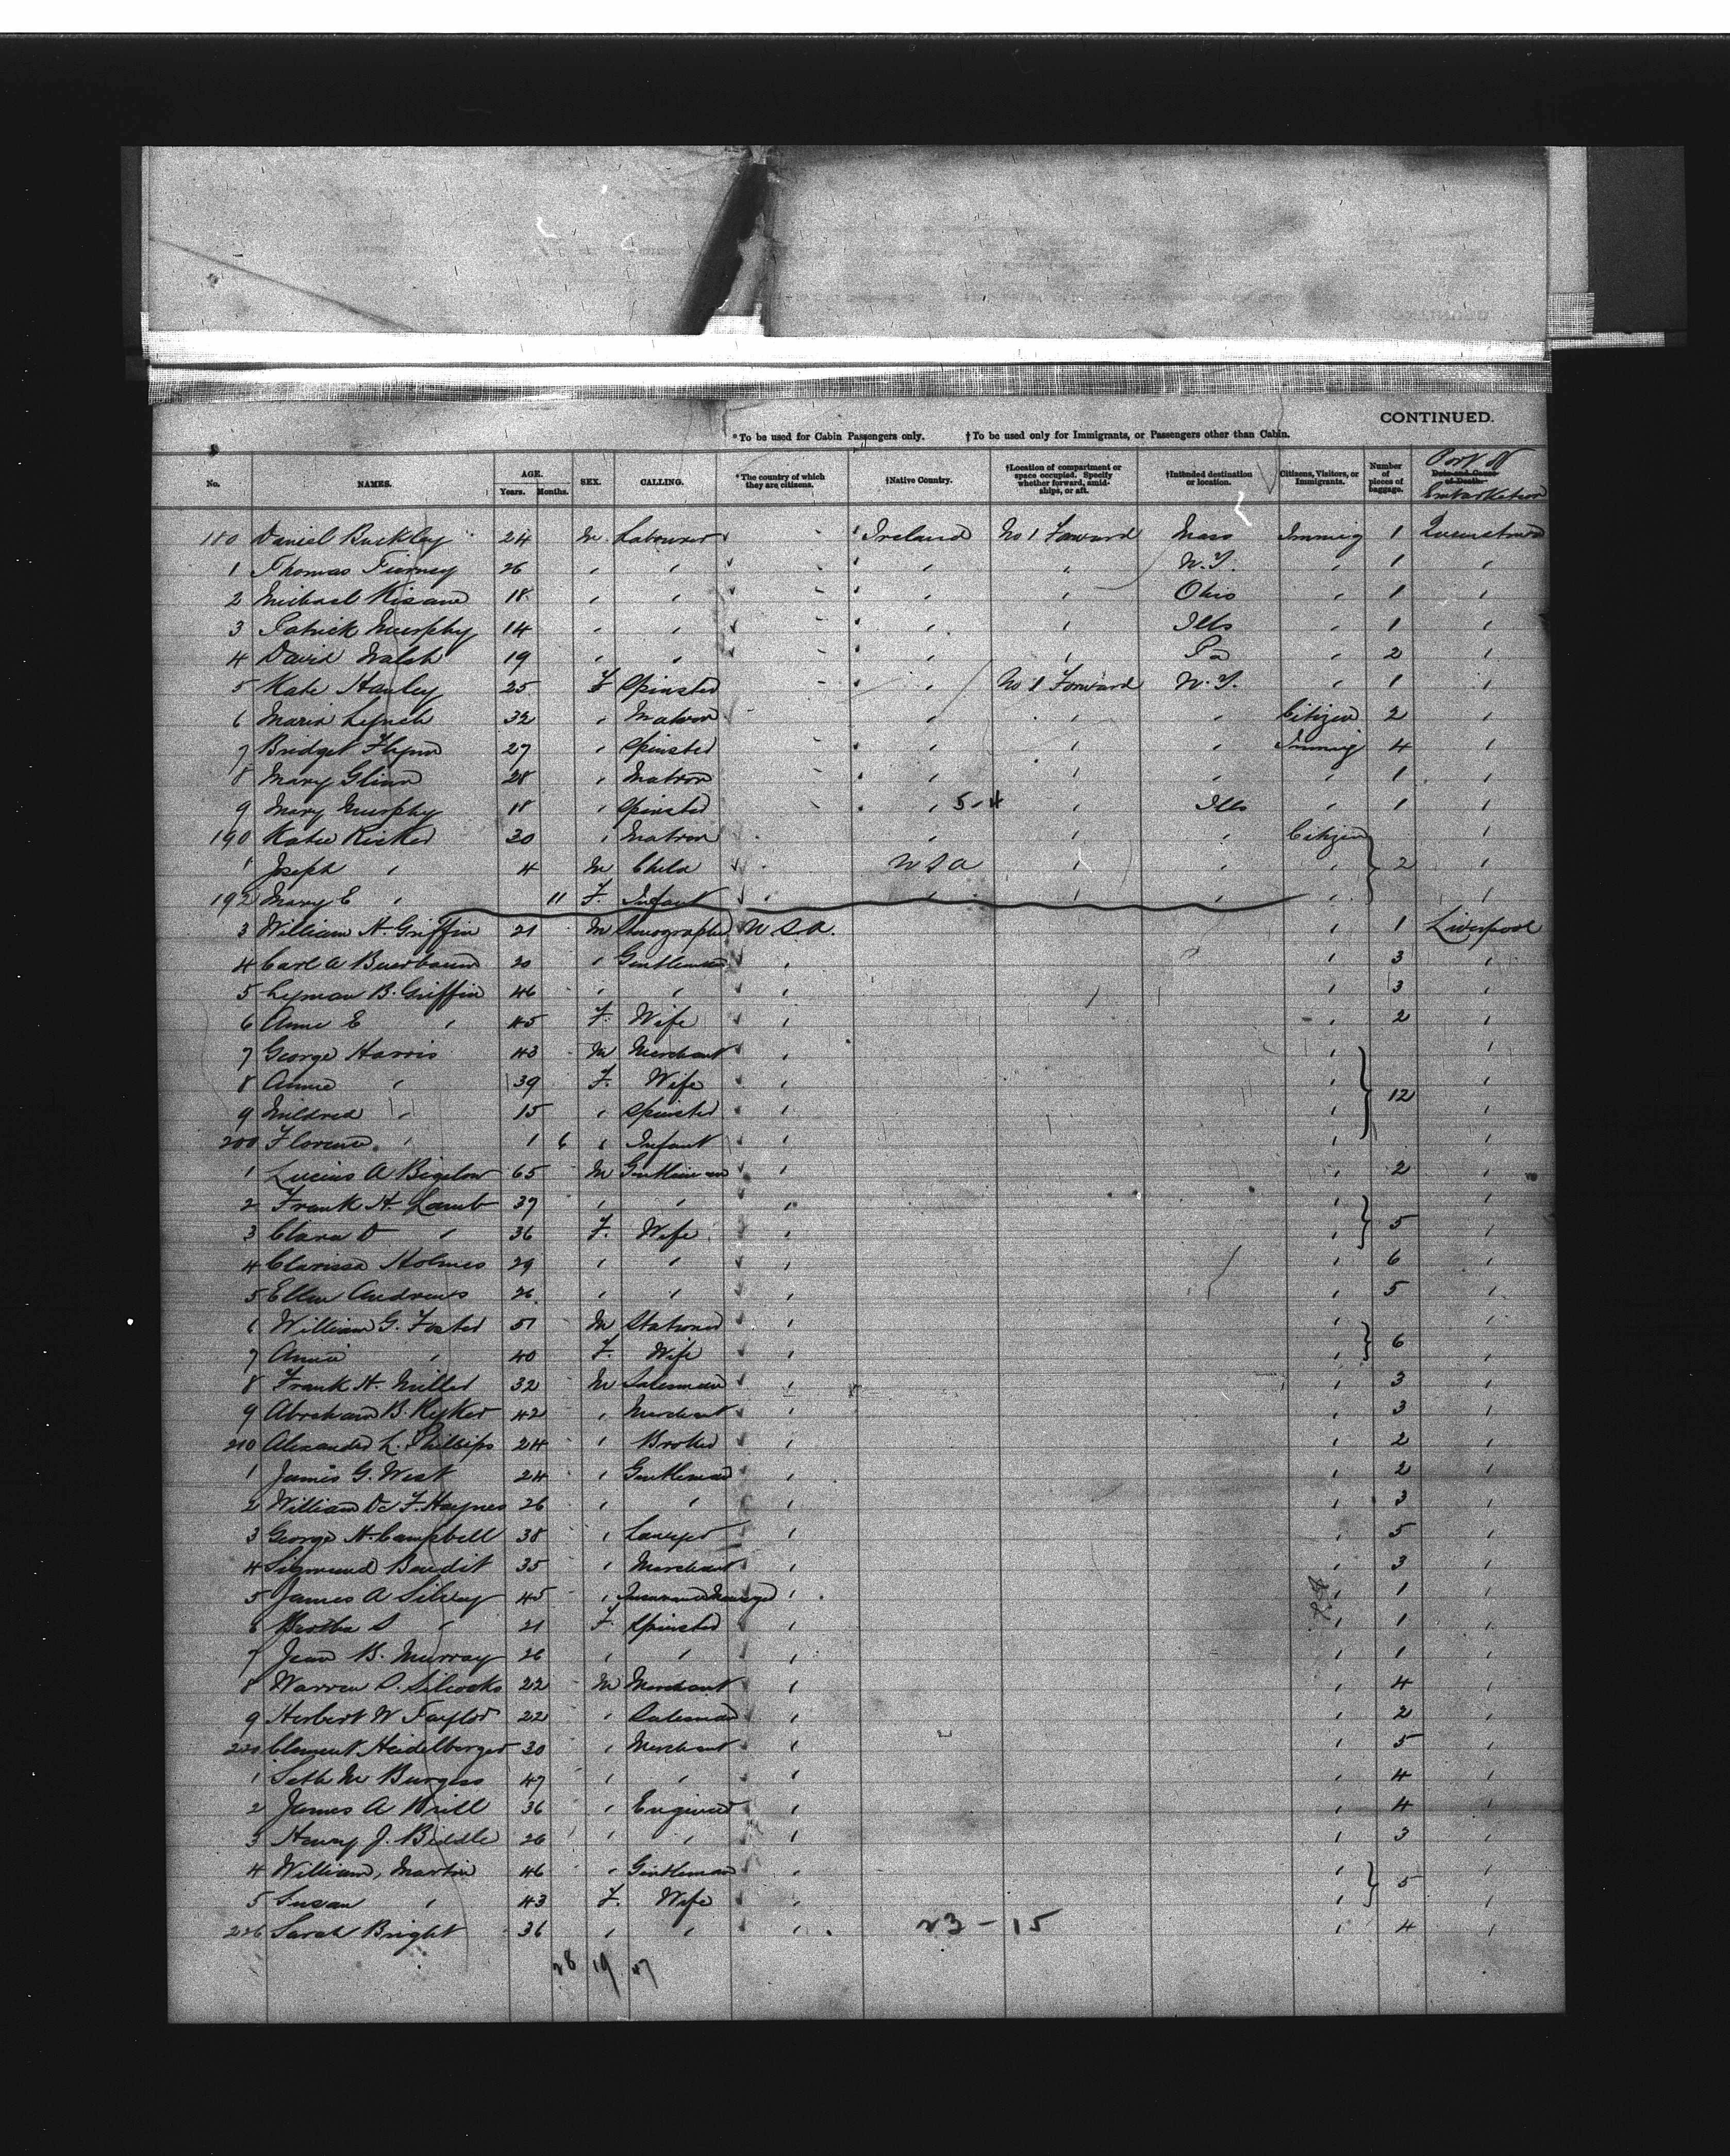 CONTINUED.
*To be used for Cabin Passengers only. †To be used only for Immigrants, or Passengers other than Cabin.
No. NAMES. AGE. Years. Months. SEX. CALLING. *The country of which they are citizens. †Native Country. †Location of compartment or space occupied. Specify whether forward, amidships, or aft. †Intended destination or location. Citizens, Visitors, or Immigrants. Number of pieces of baggage. Date and Cause of Death. Port of Embarkation
180 Daniel Buckley 24 M Labourer Ireland No 1 Forward Mass Immig 1 Queenstown
1 Thomas Tierney 26 " " " " N.Y. " 1 "
2 Michael Kisane 18 " " " " Ohio " 1 "
3 Patrick Murphy 14 " " " " Ills " 1 "
4 David Walsh 19 " " " " Pa " 2 "
5 Kate Hanley 25 F Spinster " No 1 Forward N.Y. " 1 "
6 Maria Lynch 32 " Matron " " " Citizen 2 "
7 Bridget Flynn 27 " Spinster " " " Immig 4 "
8 Mary Glinn 28 " Matron " " " " 1 "
9 Mary Murphy 18 " Spinster " 5-4 " Ills " 1 "
190 Katie Ricker 30 " Matron " " " Citizen "
1 Joseph " 4 M Child U S A " " " 2 "
192 Mary E " 11 F. Infant " " " " "
3 William H. Griffin 21 M Stenographer U S A. " 1 Liverpool
4 Carl A Buerbaum 20 " Gentleman " " 3 "
5 Lyman B. Griffin 46 " " " " 3 "
6 Anne E " 45 F. Wife " " 2 "
7 George Harris 43 M Merchant " " "
8 Annie " 39 F. Wife " " "
9 Mildred " 15 " Spinster " " 12 "
200 Florence " 1 6 " Infant " "
1 Lucius A Bigelow 65 M Gentleman " " 2 "
2 Frank H. Lamb 37 " " " " "
3 Clara D " 36 F. Wife " " 5 "
4 Clarissa Holmes 29 " " " " 6 "
5 Ellen Andrews 26 " " " " 5 "
6 William G. Foster 51 M Stationer " " "
7 Annie " 40 F. Wife " " 6 "
8 Frank H. Miller 32 M Salesman " " 3 "
9 Abraham B. Ryker 42 " Merchant " " 3 "
210 Alexander L. Phillips 24 " Broker " " 2 "
1 James G. West 24 " Gentleman " " 2 "
2 William De F. Haynes 26 " " " " 3 "
3 George H. Campbell 38 " Lawyer " " 5 "
4 Sigmund Bendit 35 " Merchant " " 3 "
5 James A Silvey 45 " Insurance Manager " " 1 "
6 Bertha S " 21 F. Spinster " " 1 "
7 Jean B. Murray 26 " " " " 1 "
8 Warren S. Silcocks 22 M Merchant " " 4 "
9 Herbert W Taylor 22 " Salesman " " 2 "
220 Clement Heidelberger 30 " Merchant " " 5 "
1 Seth M Burgess 47 " " " " 4 "
2 James A Brill 36 " Engineer " " 4 "
3 Henry J. Biddle 26 " " " " 3 "
4 William Martin 46 " Gentleman " " "
5 Susan " 43 F. Wife " " 5 "
226 Sarah Bright 36 " " " 23 - 15 " 4 "
28 19 47